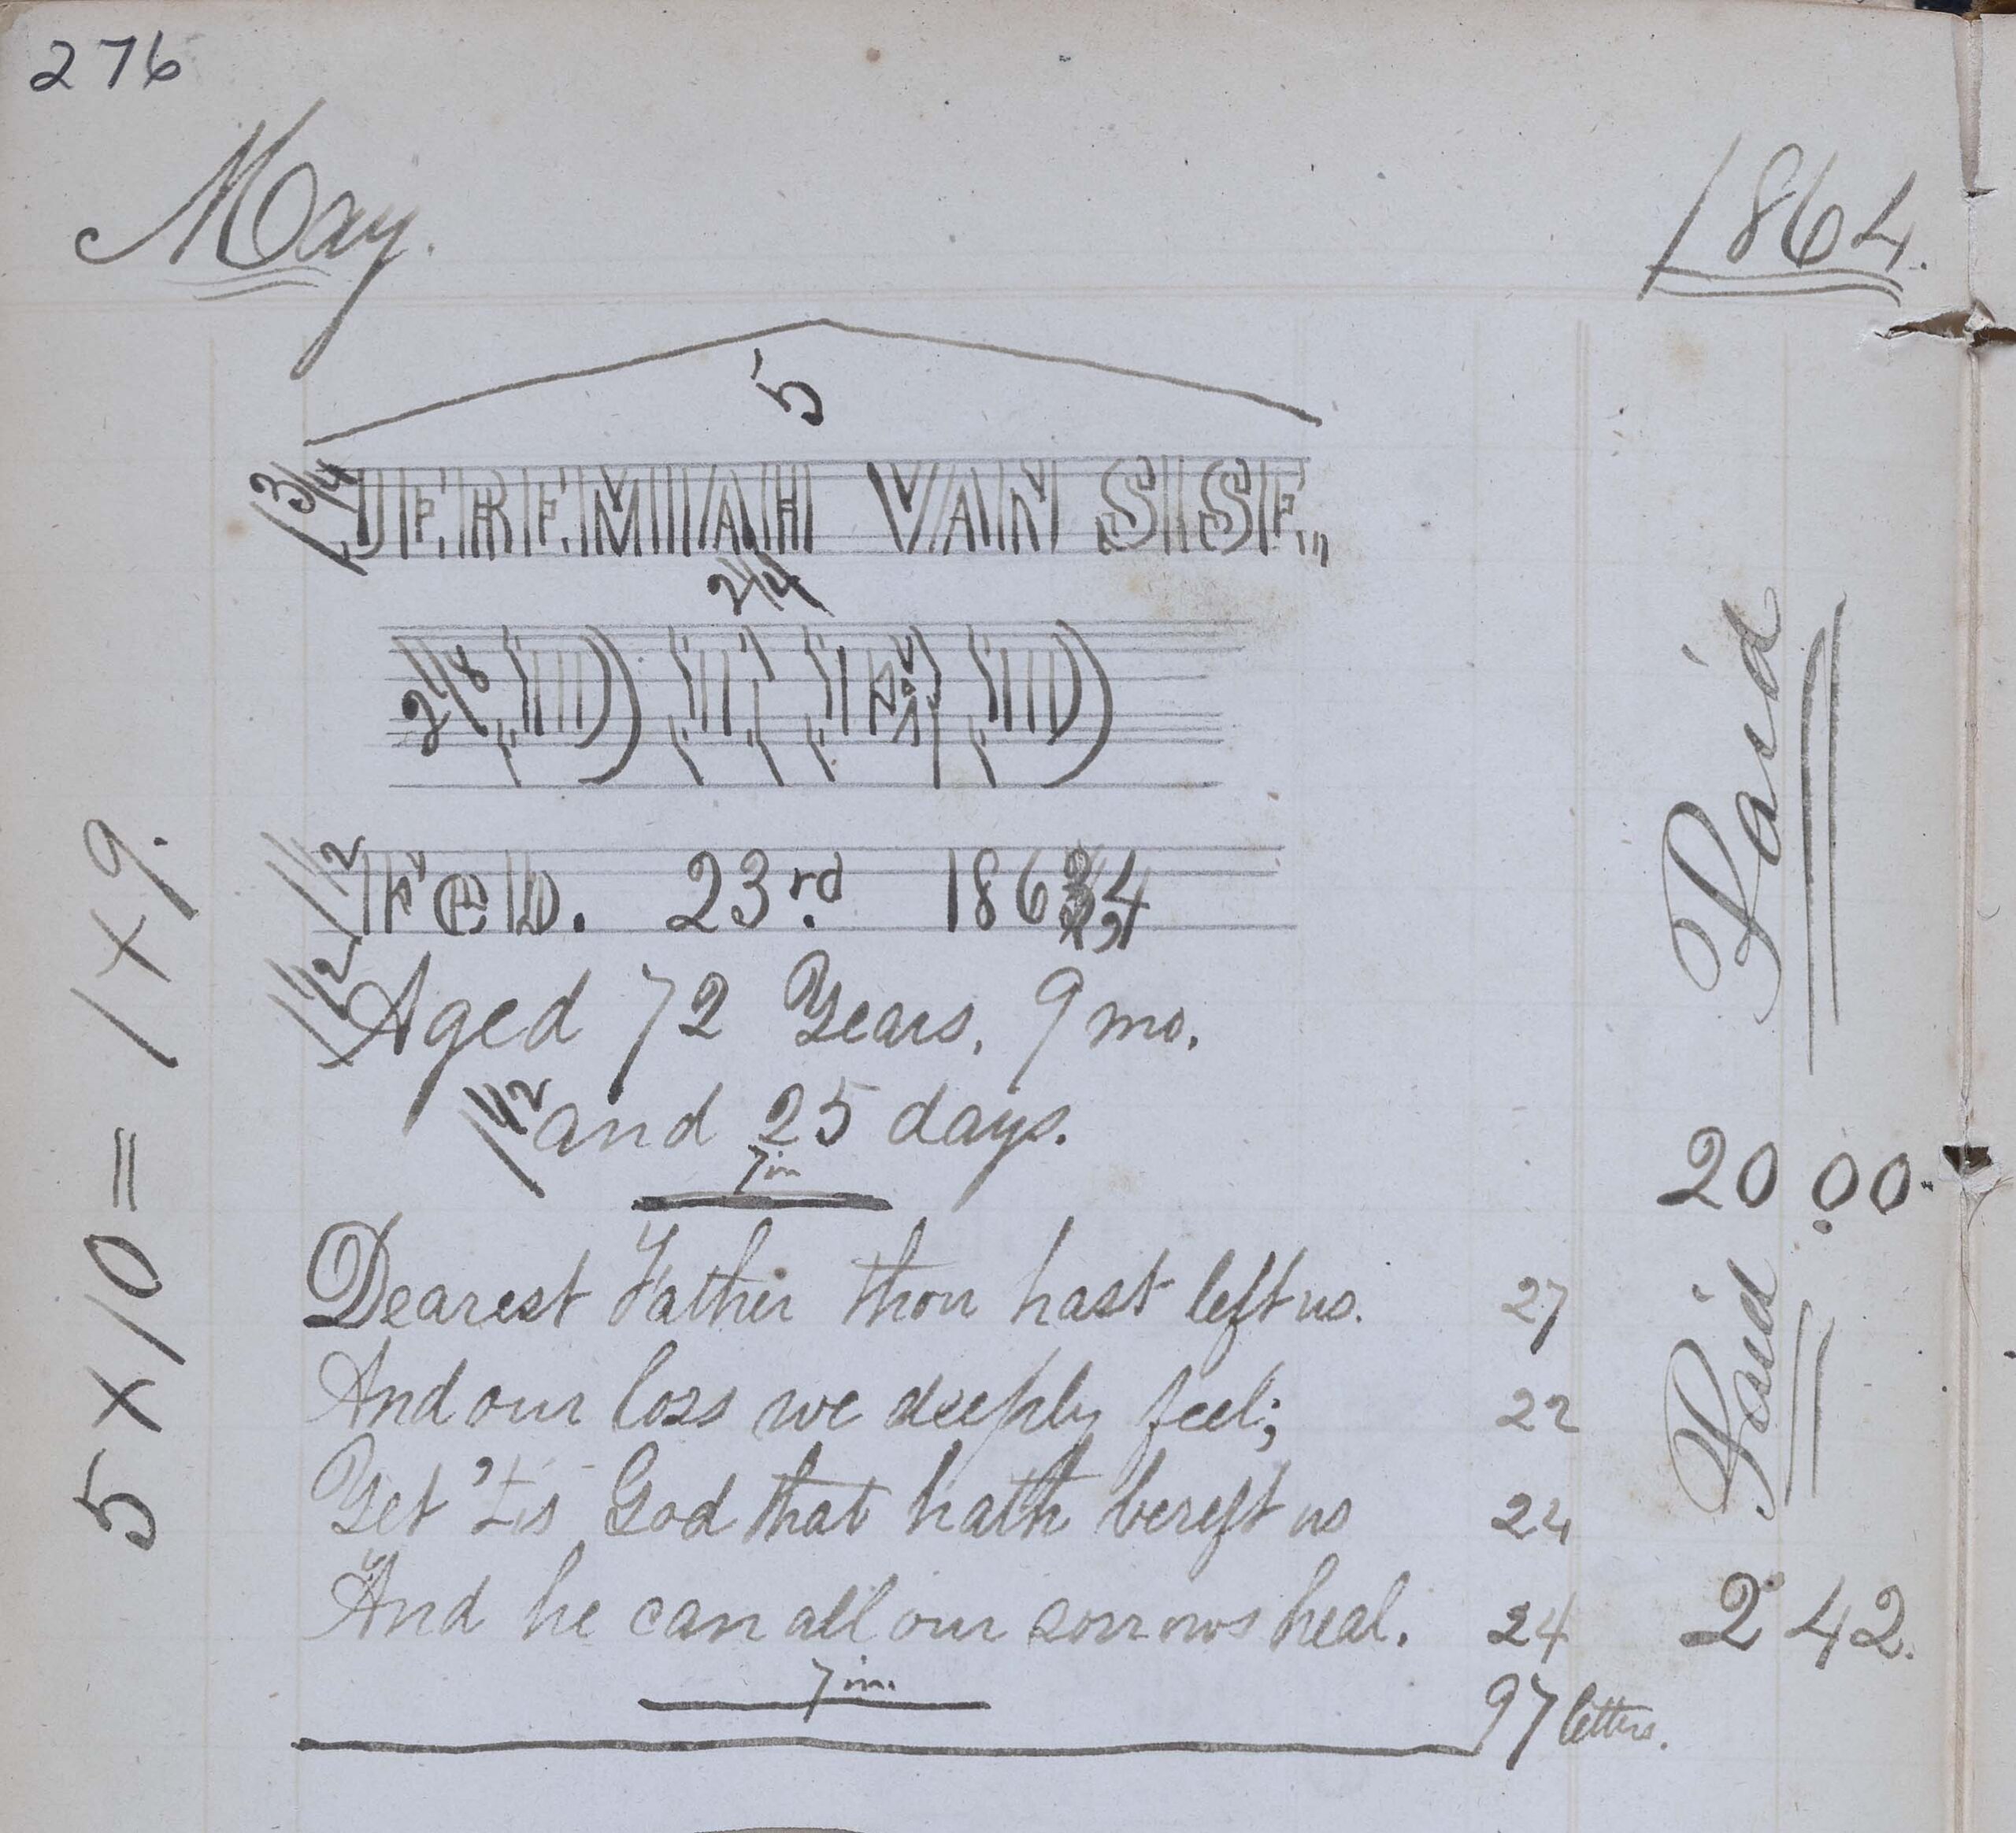 276
May. 1864.
5
1 3/4 JEREMIAH VAN SISE,
2 1/4
2 1/8 DIED
Feb. 23rd. 1864
1 1/2
1 1/2 Aged 72 Years, 9 mo.
1 1/2 and 25 days.
7 in
20.00.
Paid
Dearest Father thou hast left us. 27
And our loss we deeply feel; 22
Yet 'tis God that hath bereft us 24
And he can all our sorrows heal. 24 2 42.
Paid
7 in.
97 letters.
5 x 10 = 1 x 9.